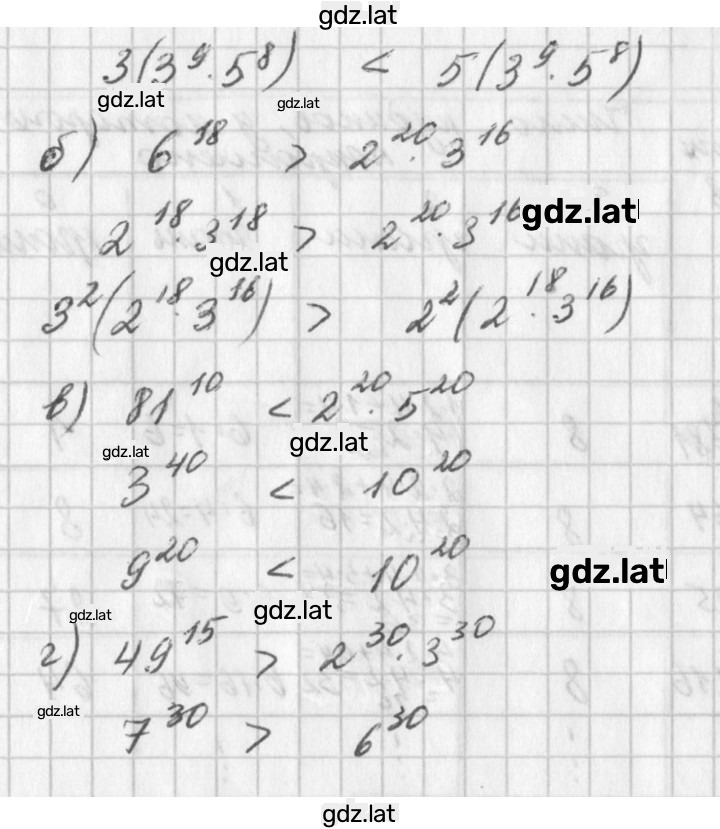 gdz.lat
3(3⁹·5⁸) < 5(3⁹·5⁸)
gdz.lat gdz.lat
б) 6¹⁸ > 2²⁰·3¹⁶
gdz.lat
2¹⁸·3¹⁸ > 2²⁰·3¹⁶
gdz.lat
3²(2¹⁸·3¹⁶) > 2²(2¹⁸·3¹⁶)
в) 81¹⁰ < 2²⁰·5²⁰
gdz.lat gdz.lat
3⁴⁰ < 10²⁰
9²⁰ < 10²⁰
gdz.lat
gdz.lat gdz.lat
г) 49¹⁵ > 2³⁰·3³⁰
gdz.lat
7³⁰ > 6³⁰
gdz.lat